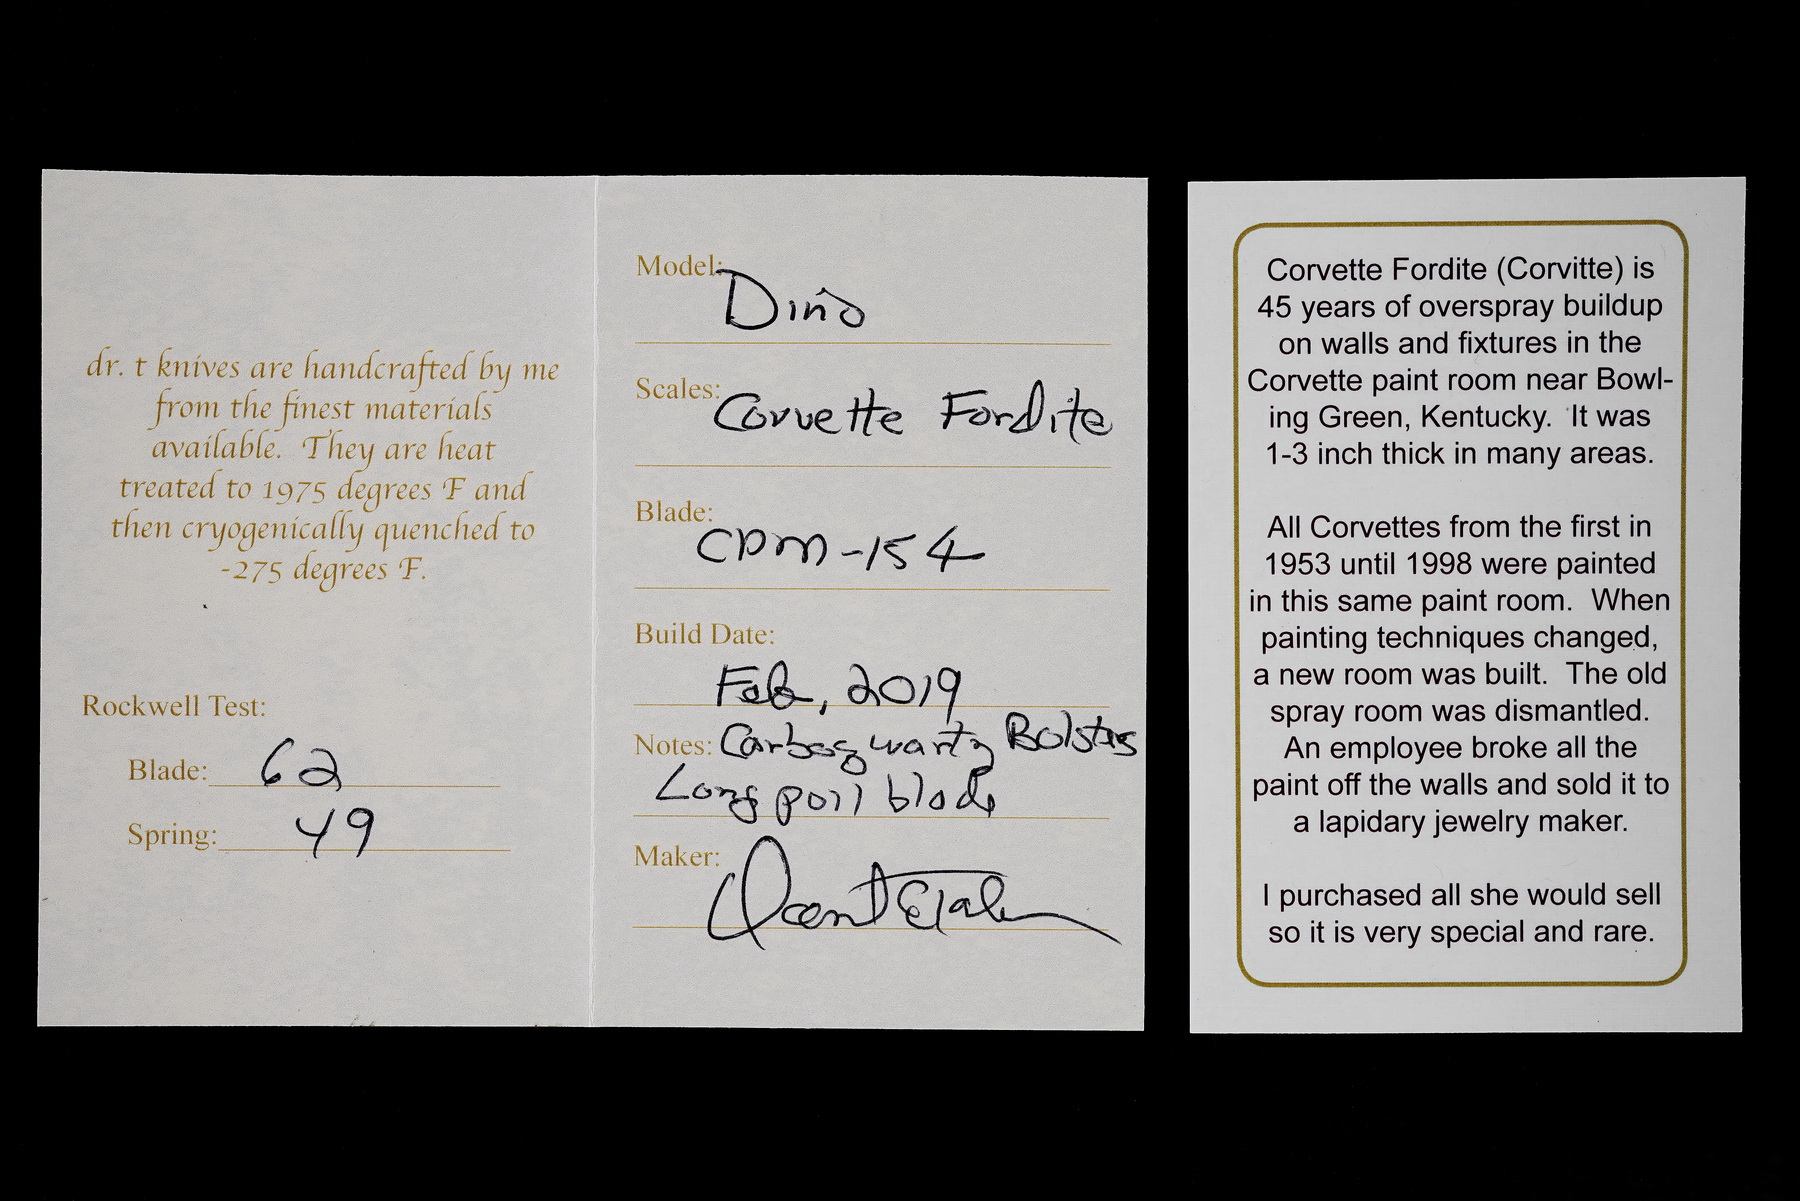 dr. t knives are handcrafted by me
from the finest materials
available. They are heat
treated to 1975 degrees F and
then cryogenically quenched to
-275 degrees F.
Rockwell Test:
Blade: 62
Spring: 49
Model: Dino
Scales: Corvette Fordite
Blade: CPM-154
Build Date:
Feb, 2019
Notes: Carboquartz Bolsters
Long pull blade
Maker:
Corvette Fordite (Corvitte) is
45 years of overspray buildup
on walls and fixtures in the
Corvette paint room near Bowl-
ing Green, Kentucky. It was
1-3 inch thick in many areas.
All Corvettes from the first in
1953 until 1998 were painted
in this same paint room. When
painting techniques changed,
a new room was built. The old
spray room was dismantled.
An employee broke all the
paint off the walls and sold it to
a lapidary jewelry maker.
I purchased all she would sell
so it is very special and rare.